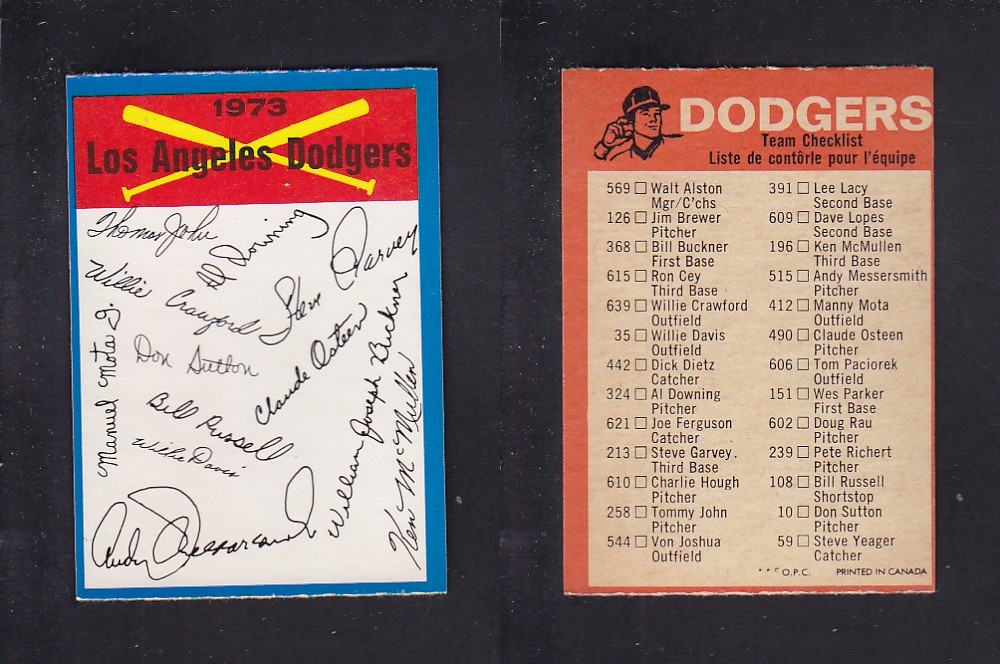 1973
Los Angeles Dodgers
Thomas John
Al Downing
Steve Garvey
Willie Crawford
Manuel Mota G.
Don Sutton
Claude Osteen
William Joseph Buckner
Ken McMullen
Bill Russell
Willie Davis
Andy Messersmith
DODGERS
Team Checklist
Liste de contôrle pour l'équipe
569 Walt Alston
Mgr/C'chs
126 Jim Brewer
Pitcher
368 Bill Buckner
First Base
615 Ron Cey
Third Base
639 Willie Crawford
Outfield
35 Willie Davis
Outfield
442 Dick Dietz
Catcher
324 Al Downing
Pitcher
621 Joe Ferguson
Catcher
213 Steve Garvey.
Third Base
610 Charlie Hough
Pitcher
258 Tommy John
Pitcher
544 Von Joshua
Outfield
391 Lee Lacy
Second Base
609 Dave Lopes
Second Base
196 Ken McMullen
Third Base
515 Andy Messersmith
Pitcher
412 Manny Mota
Outfield
490 Claude Osteen
Pitcher
606 Tom Paciorek
Outfield
151 Wes Parker
First Base
602 Doug Rau
Pitcher
239 Pete Richert
Pitcher
108 Bill Russell
Shortstop
10 Don Sutton
Pitcher
59 Steve Yeager
Catcher
** © O.P.C. PRINTED IN CANADA